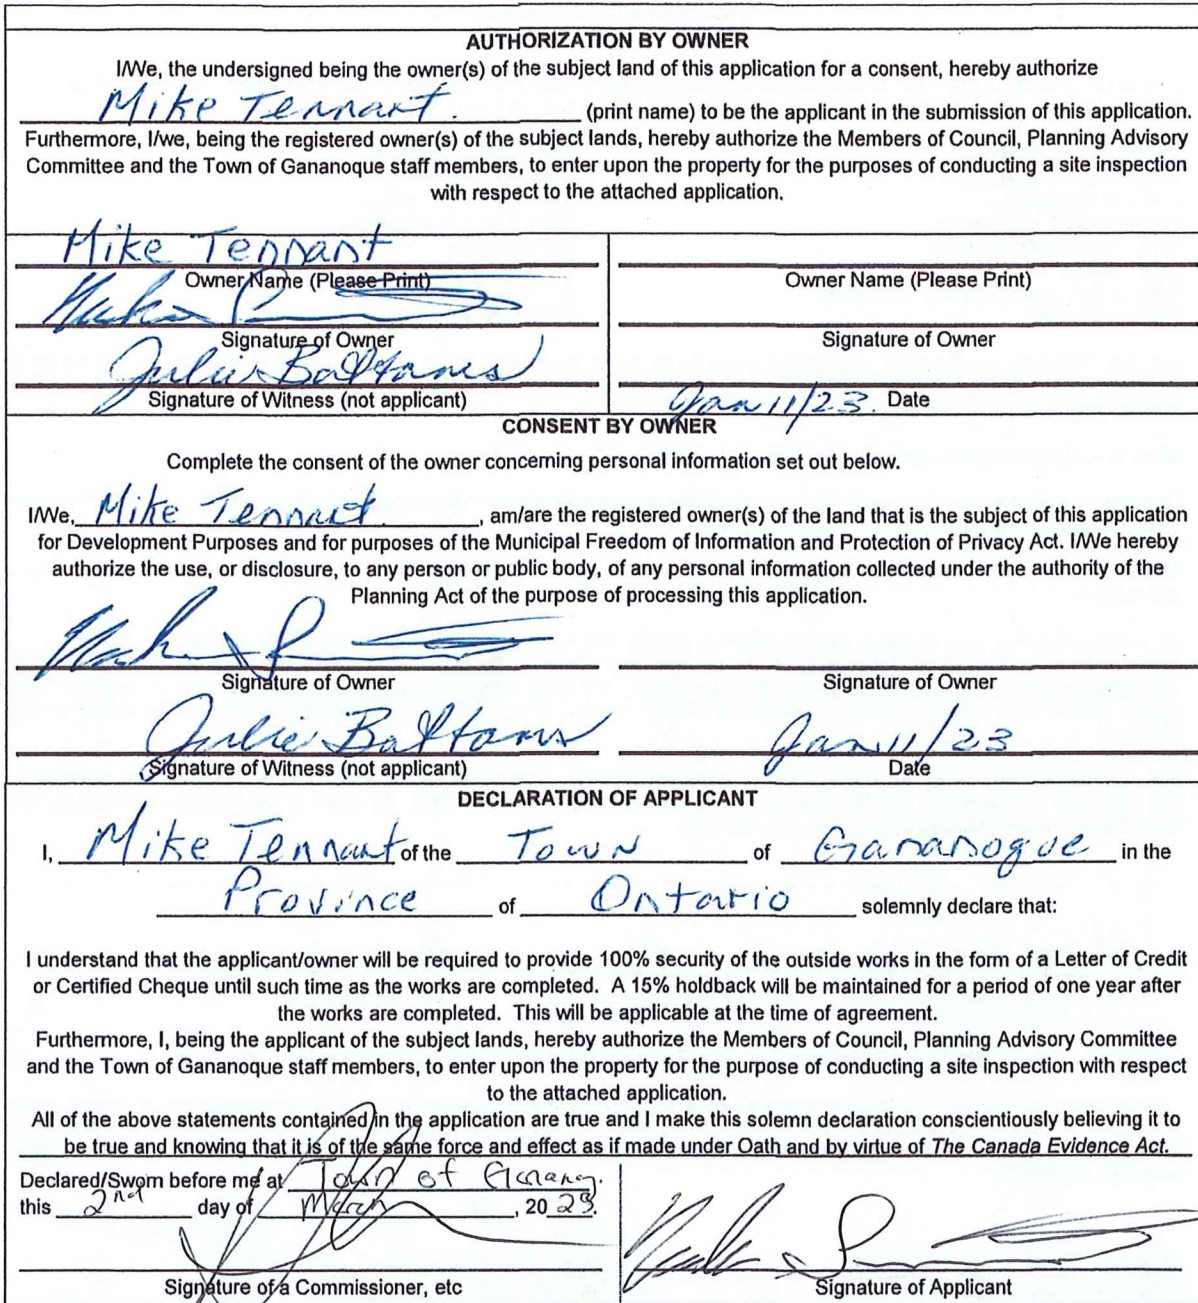 AUTHORIZATION BY OWNER
I/We, the undersigned being the owner(s) of the subject land of this application for a consent, hereby authorize
Mike Tennant. (print name) to be the applicant in the submission of this application.
Furthermore, I/we, being the registered owner(s) of the subject lands, hereby authorize the Members of Council, Planning Advisory
Committee and the Town of Gananoque staff members, to enter upon the property for the purposes of conducting a site inspection
with respect to the attached application.
Mike Tennant
Owner Name (Please Print)
Owner Name (Please Print)
Signature of Owner
Signature of Owner
Julie
Signature of Witness (not applicant)
Jan 11/23. Date
CONSENT BY OWNER
Complete the consent of the owner concerning personal information set out below.
I/We, Mike Tennant, am/are the registered owner(s) of the land that is the subject of this application
for Development Purposes and for purposes of the Municipal Freedom of Information and Protection of Privacy Act. I/We hereby
authorize the use, or disclosure, to any person or public body, of any personal information collected under the authority of the
Planning Act of the purpose of processing this application.
Signature of Owner
Signature of Owner
Julie
Jan 11/23
Signature of Witness (not applicant)
Date
DECLARATION OF APPLICANT
I, Mike Tennant of the Town of Gananogue in the
Province of Ontario solemnly declare that:
I understand that the applicant/owner will be required to provide 100% security of the outside works in the form of a Letter of Credit
or Certified Cheque until such time as the works are completed. A 15% holdback will be maintained for a period of one year after
the works are completed. This will be applicable at the time of agreement.
Furthermore, I, being the applicant of the subject lands, hereby authorize the Members of Council, Planning Advisory Committee
and the Town of Gananoque staff members, to enter upon the property for the purpose of conducting a site inspection with respect
to the attached application.
All of the above statements contained in the application are true and I make this solemn declaration conscientiously believing it to
be true and knowing that it is of the same force and effect as if made under Oath and by virtue of The Canada Evidence Act.
Declared/Sworn before me at Town of
this 2nd day of March, 2023.
Signature of a Commissioner, etc
Signature of Applicant